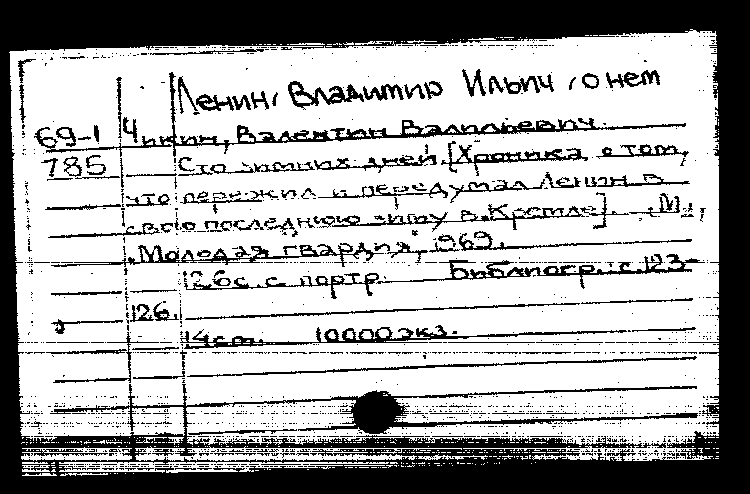 Ленин, Владимир Ильич, о нем
69-1 Чикин, Валентин Васильевич.
785 Сто зимних дней. [Хроника о том,
что пережил и передумал Ленин в
свою последнюю зиму в Кремле]. М.,
"Молодая гвардия", 1969.
126с. с портр. Библиогр.: с.123-
126.
14см. 10000 экз.